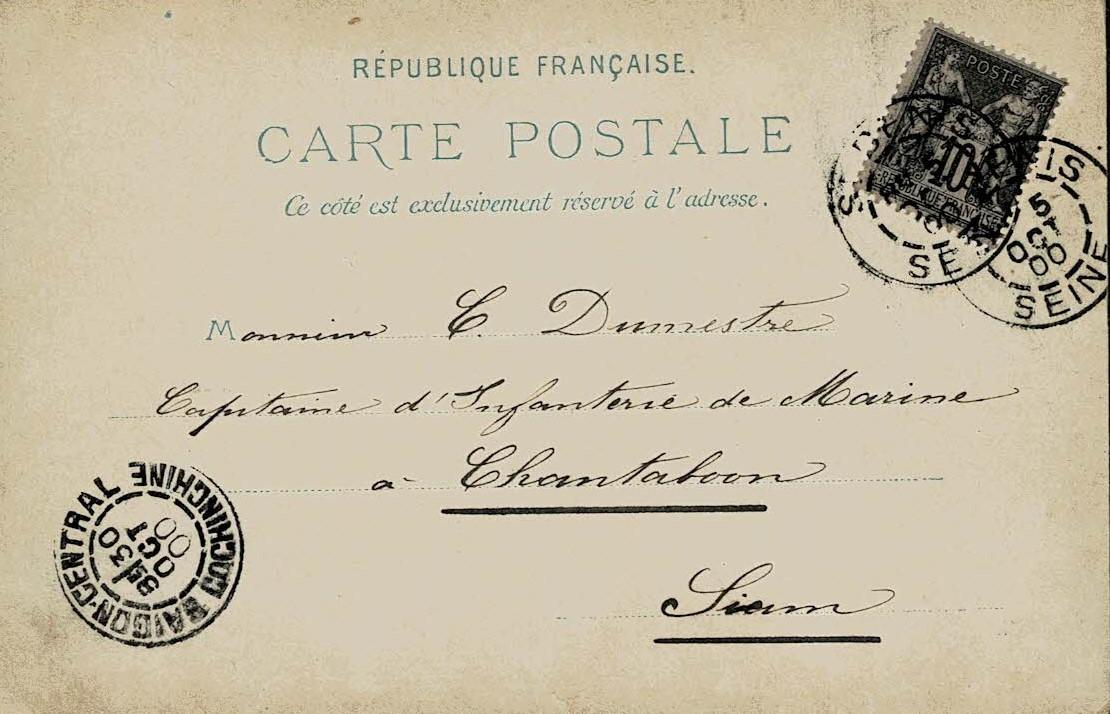 RÉPUBLIQUE FRANÇAISE.
CARTE POSTALE
Ce côté est exclusivement réservé à l'adresse.
POSTE
10
REPUBLIQUE FRANÇAISE
5
OCT
00
SEINE
SE
Monsieur C. Dumestre
Capitaine d'Infanterie de Marine
à Chantaboon
Siam
SAIGON-CENTRAL COCHINCHINE
30
OCT
00